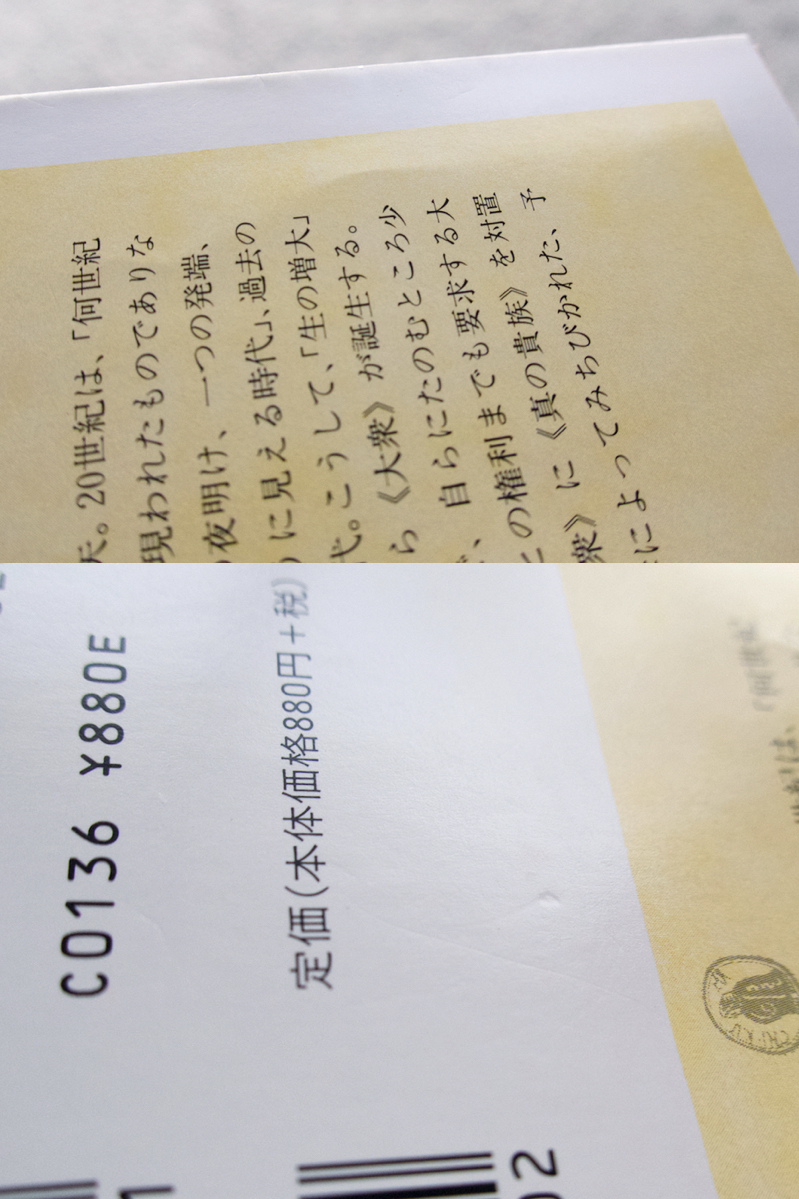 天。20世紀は、「何世紀
現われたものでありな
の夜明け、一つの発端、
に見える時代」、過去の
代。こうして、「生の増大」
ら《大衆》が誕生する。
自らにたのむところ少
、の権利までも要求する大
衆》に《真の貴族》を対置
によってみちびかれた、予
C0136 ¥880E
定価(本体価格880円+税)
02
1